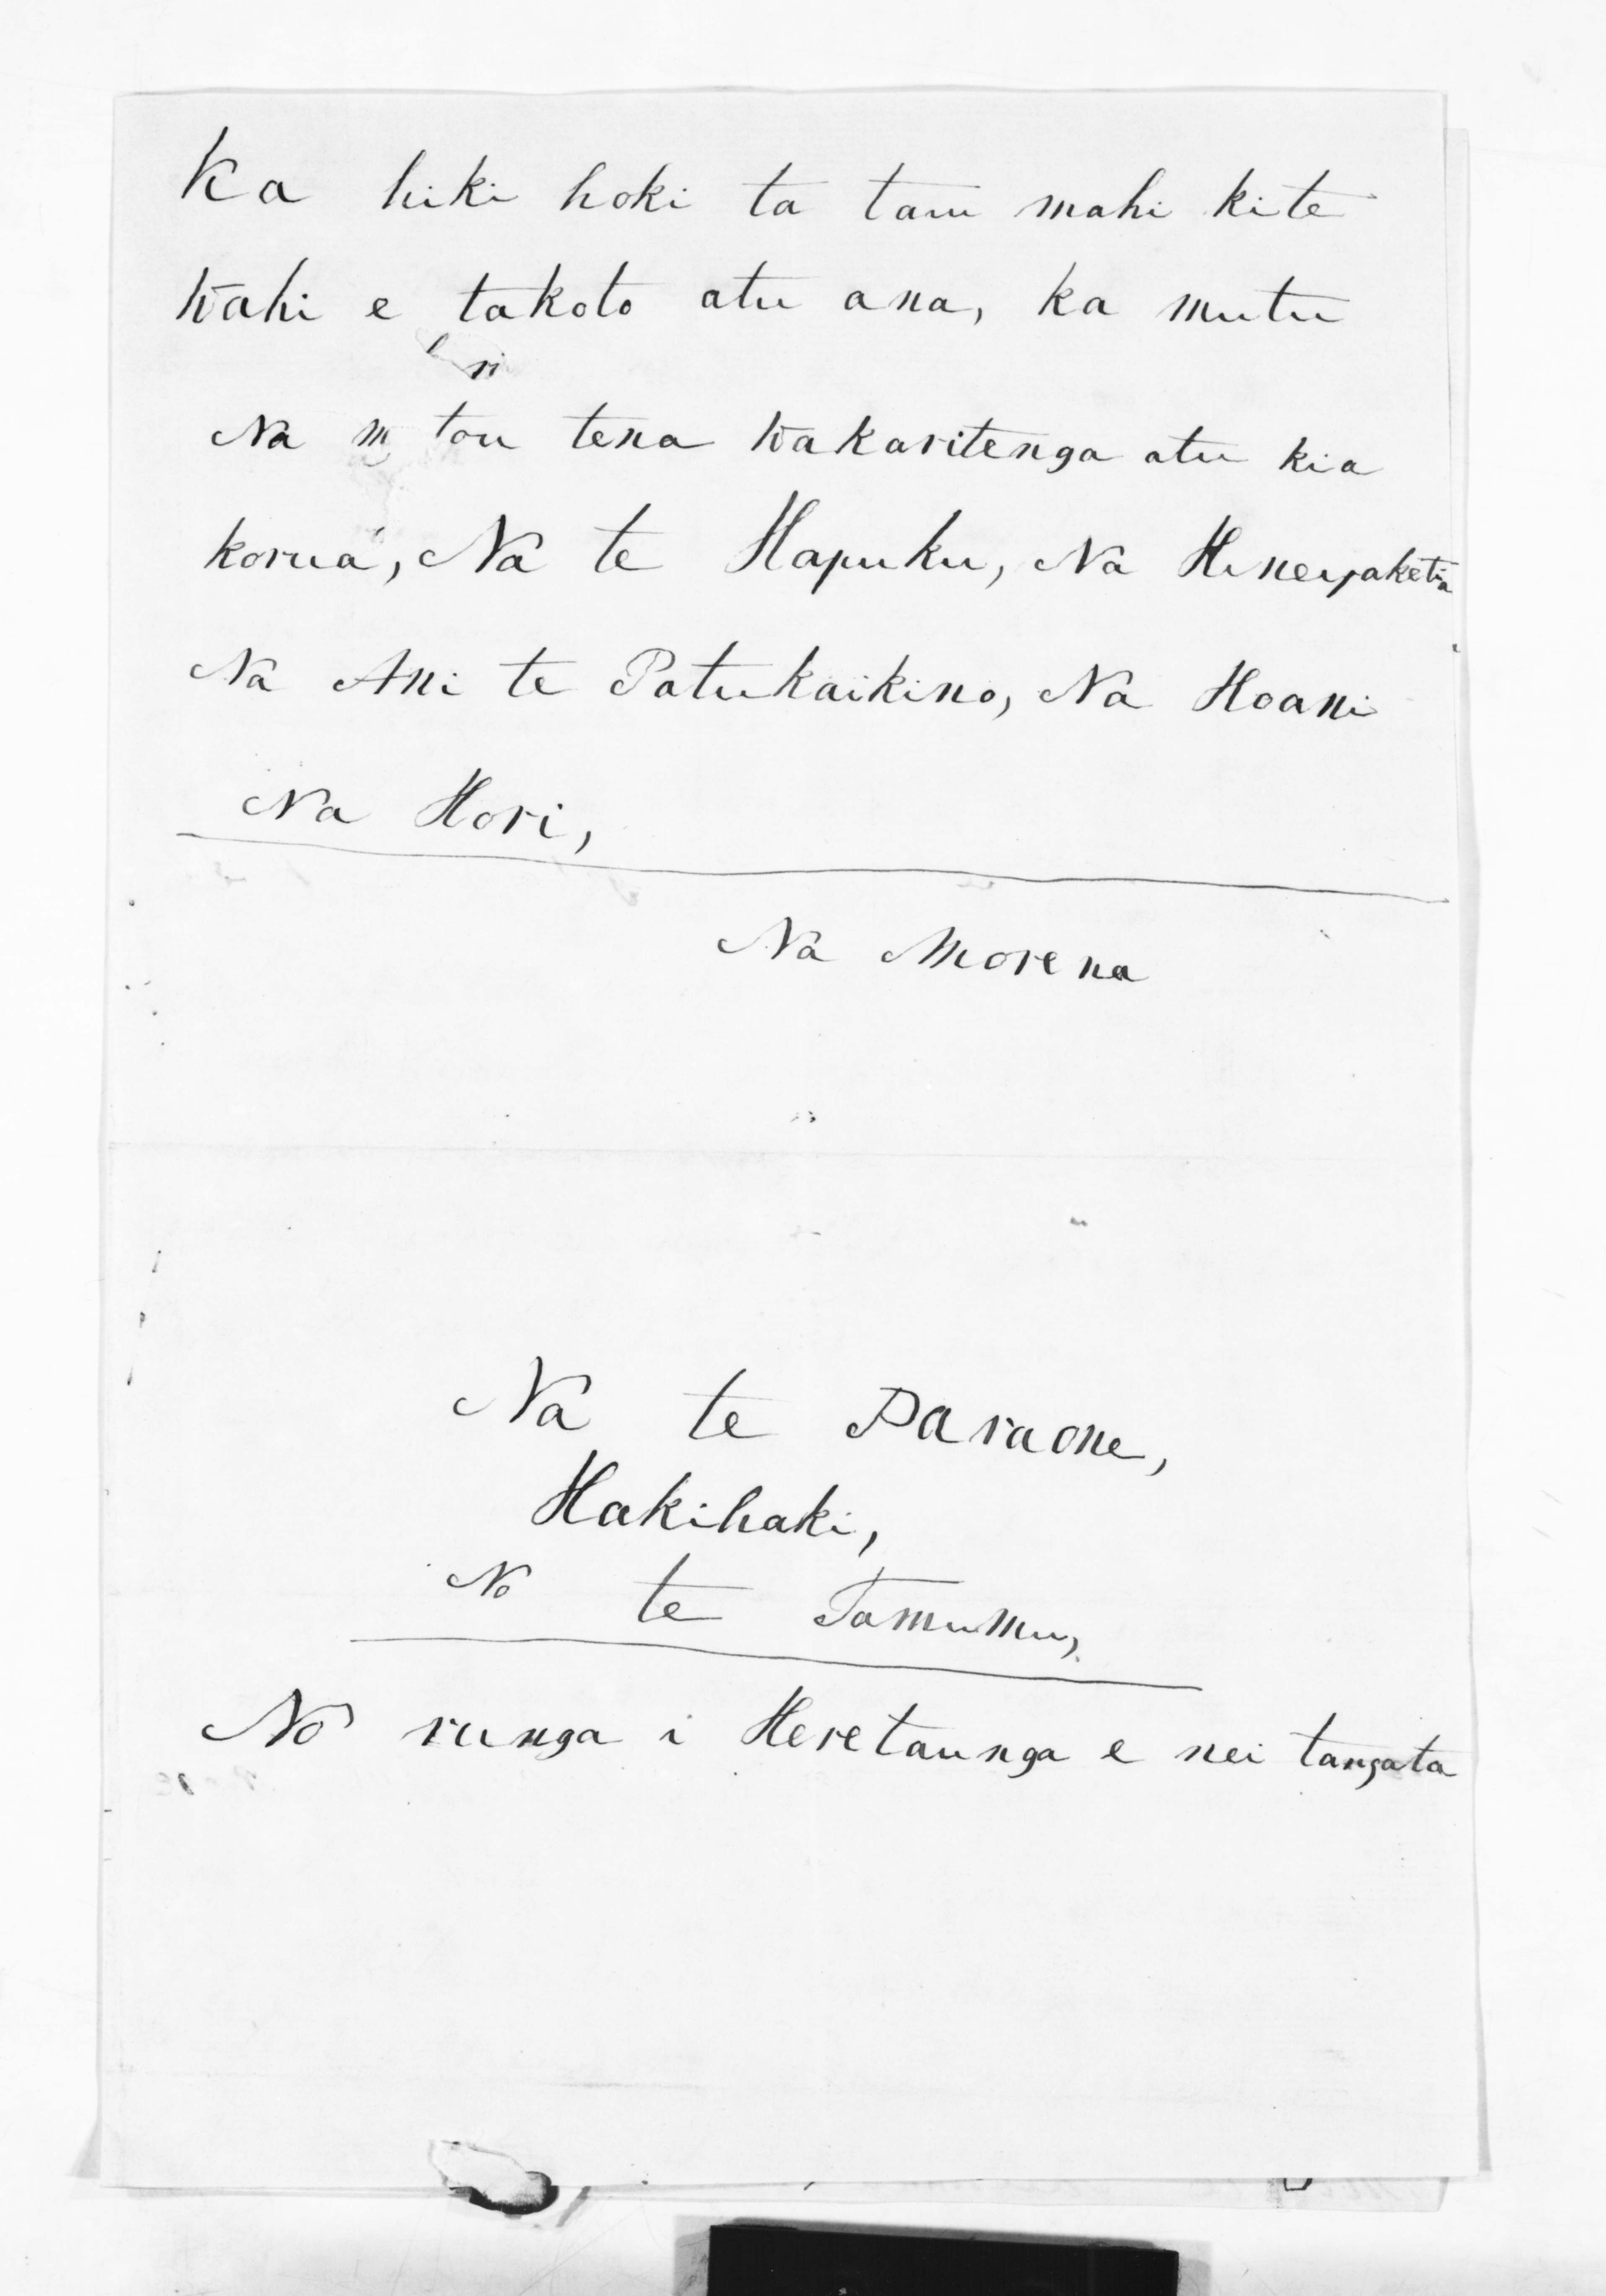 Ka hiki hoki ta tau mahi kite
wahi e takoto atu ana, ka mutu
Na m tou tena wakaritenga atu kia
korua, Na te Hapuku, Na Hinepaketia
Na Ani te Patukaikino, Na Hoani
Na Hori,
Na Morena
Na te Paraone,
Hakihaki,
No te Tamumu,
No runga i Heretaunga e nei tangata